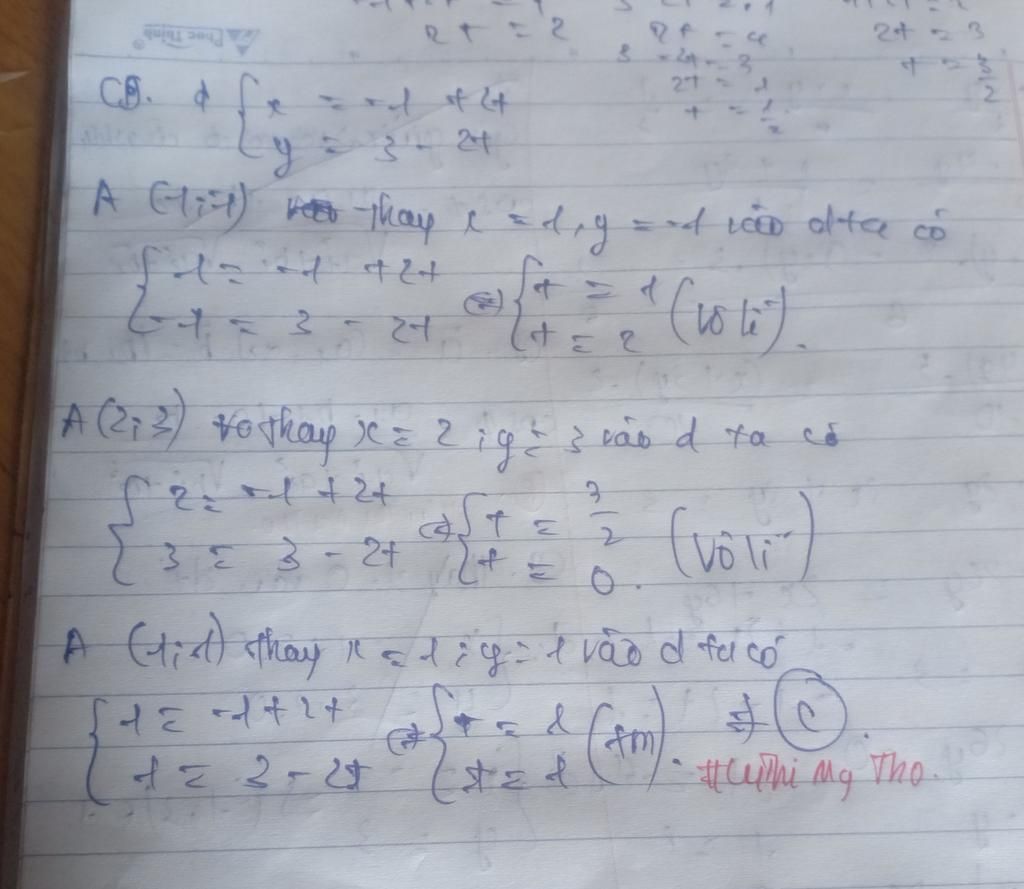 2t = 2 2t = 4 2t = 3
3 - 2t = 3 t = 3/2
2t = 1
t = 1/2
Phúc Thịnh
C8. d { x = -1 + 2t
y = 3 - 2t
A (1;-1) thay x = 1, y = -1 vào d ta có
{ 1 = -1 + 2t
-1 = 3 - 2t (=) { t = 1
t = 2 (vô lí).
A (2;3) thay x = 2 ; y = 3 vào d ta có
{ 2 = -1 + 2t
3 = 3 - 2t (=) { t = 3/2
t = 0. (vô lí)
A (1;1) thay x = 1 ; y = 1 vào d ta có
{ 1 = -1 + 2t
1 = 3 - 2t (=) { t = 1
t = 1 (tm). => C.